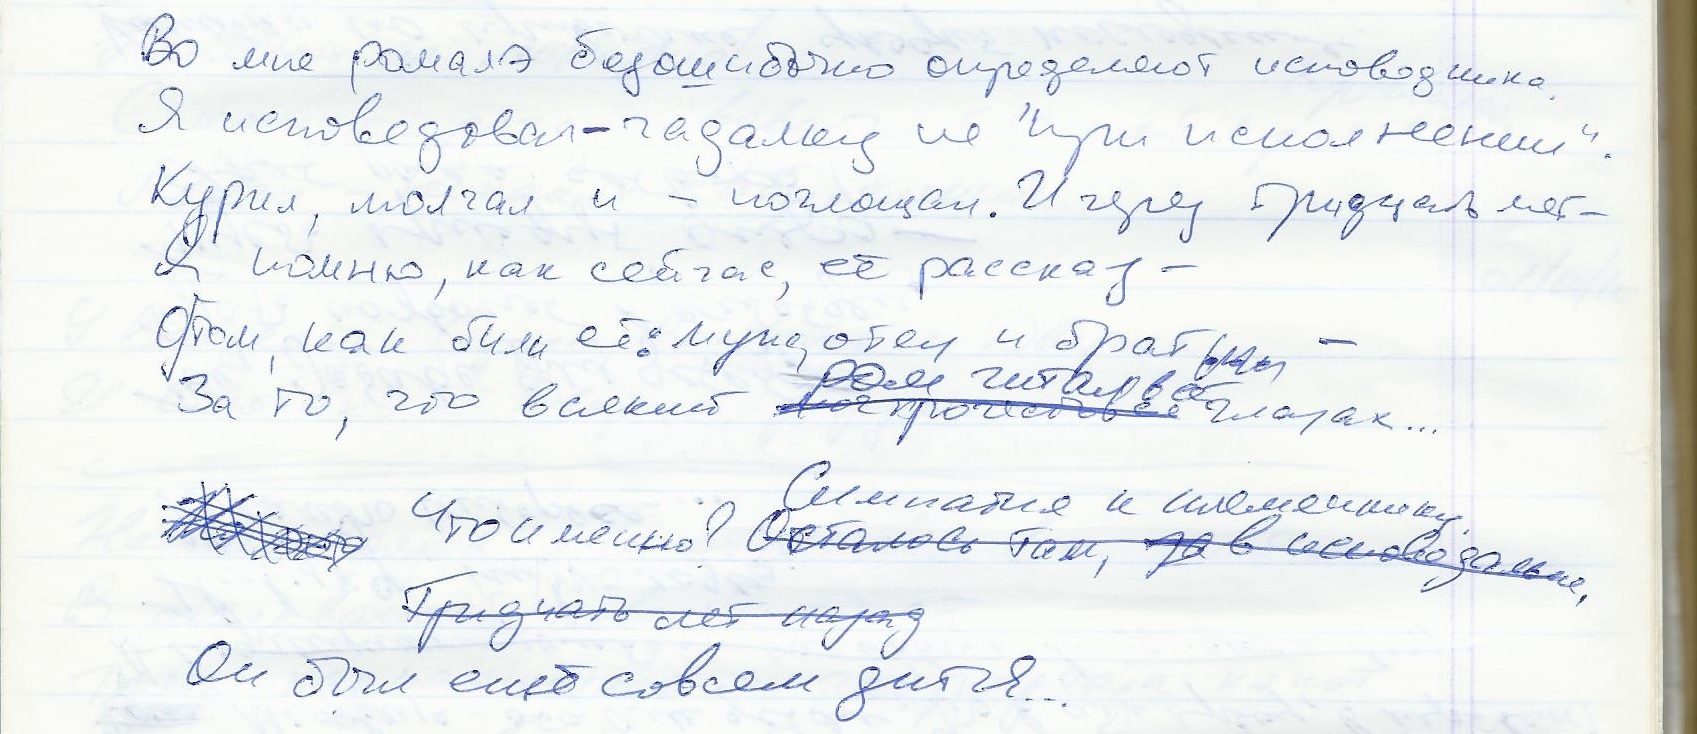 Во мне ромалэ безошибочно определяют исповедника.
Я исповедовал – гадалку не "при исполнении".
Курил, молчал и – поглощал. И через тридцать лет –
Я помню, как сейчас, её рассказ –
О том, как били её: муж, отец и братья –
ром читал в её
За то, что всякий глазах...
Симпатия к племяннику.
Что именно? Осталось там, в исповедальне,
Тридцать лет назад
Он был ещё совсем дитя...